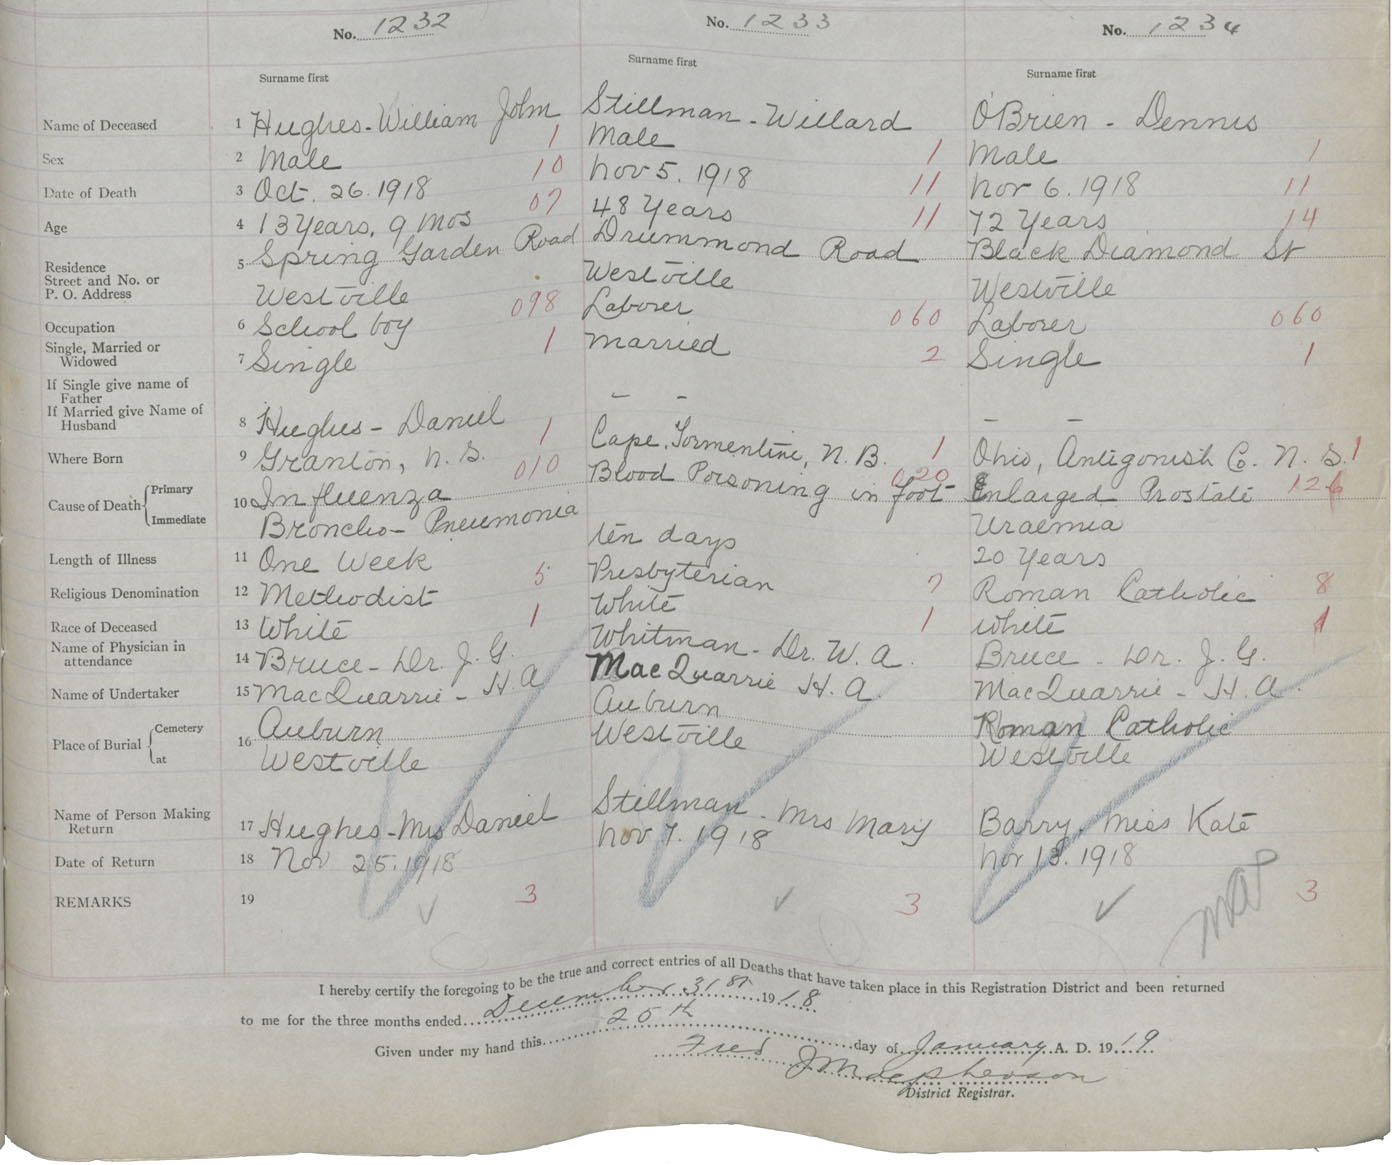 No. 1232 No. 1233 No. 1234
Surname first Surname first Surname first
Name of Deceased 1 Hughes - William John Stillman - Willard O'Brien - Dennis
Sex 2 Male 1 Male 1 Male 1
Date of Death 3 Oct. 26. 1918 10 Nov 5. 1918 11 Nov 6. 1918 11
Age 4 13 Years, 9 Mos 07 48 Years 11 72 Years 14
Residence 5 Spring Garden Road Drummond Road Black Diamond St
Street and No. or
P. O. Address Westville Westville Westville
Occupation 6 School boy 098 Laborer 060 Laborer 060
Single, Married or
Widowed 7 Single 1 Married 2 Single 1
If Single give name of
Father
If Married give Name of
Husband 8 Hughes - Daniel - - - -
Where Born 9 Granton, N. S. 1 Cape Tormentine, N. B. 1 Ohio, Antigonish Co. N. S. 1
Cause of Death Primary 10 Influenza 010 Blood Poisoning in foot 020 Enlarged Prostate 126
Immediate Broncho - Pneumonia Uraemia
Length of Illness 11 One Week ten days 20 Years
Religious Denomination 12 Methodist 5 Presbyterian 7 Roman Catholic 8
Race of Deceased 13 White 1 White 1 White 1
Name of Physician in
attendance 14 Bruce - Dr. J. G. Whitman - Dr. W. A. Bruce - Dr. J. G.
Name of Undertaker 15 MacQuarrie - H. A MacQuarrie H. A. MacQuarrie - H. A.
Place of Burial Cemetery 16 Auburn Auburn Roman Catholic
at Westville Westville Westville
Name of Person Making
Return 17 Hughes - Mrs Daniel Stillman - Mrs Mary Barry, Miss Kate
Date of Return 18 Nov 25. 1918 Nov 7. 1918 Nov 13. 1918
REMARKS 19 3 3 3
I hereby certify the foregoing to be the true and correct entries of all Deaths that have taken place in this Registration District and been returned
to me for the three months ended December 31st 1918
Given under my hand this 25th day of January A. D. 1919
Fred J Macpherson
District Registrar.